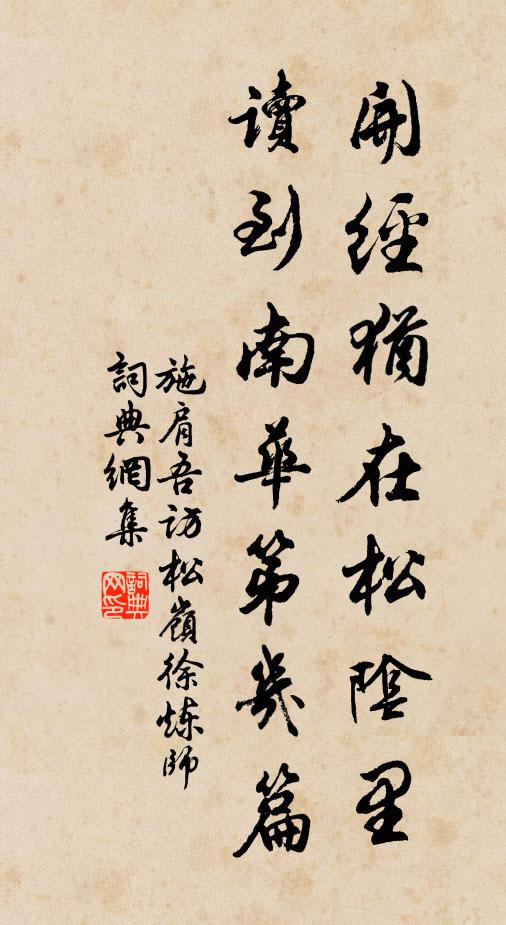 開經猶在松陰里
讀到南華第幾篇
施肩吾訪松嶺徐煉師
詞典網集
詞典网印